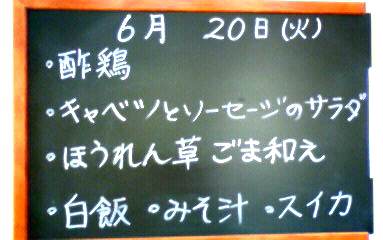 6月 20日(火)
・酢鶏
・キャベツとソーセージのサラダ
・ほうれん草 ごま和え
・白飯 ・みそ汁 ・スイカ